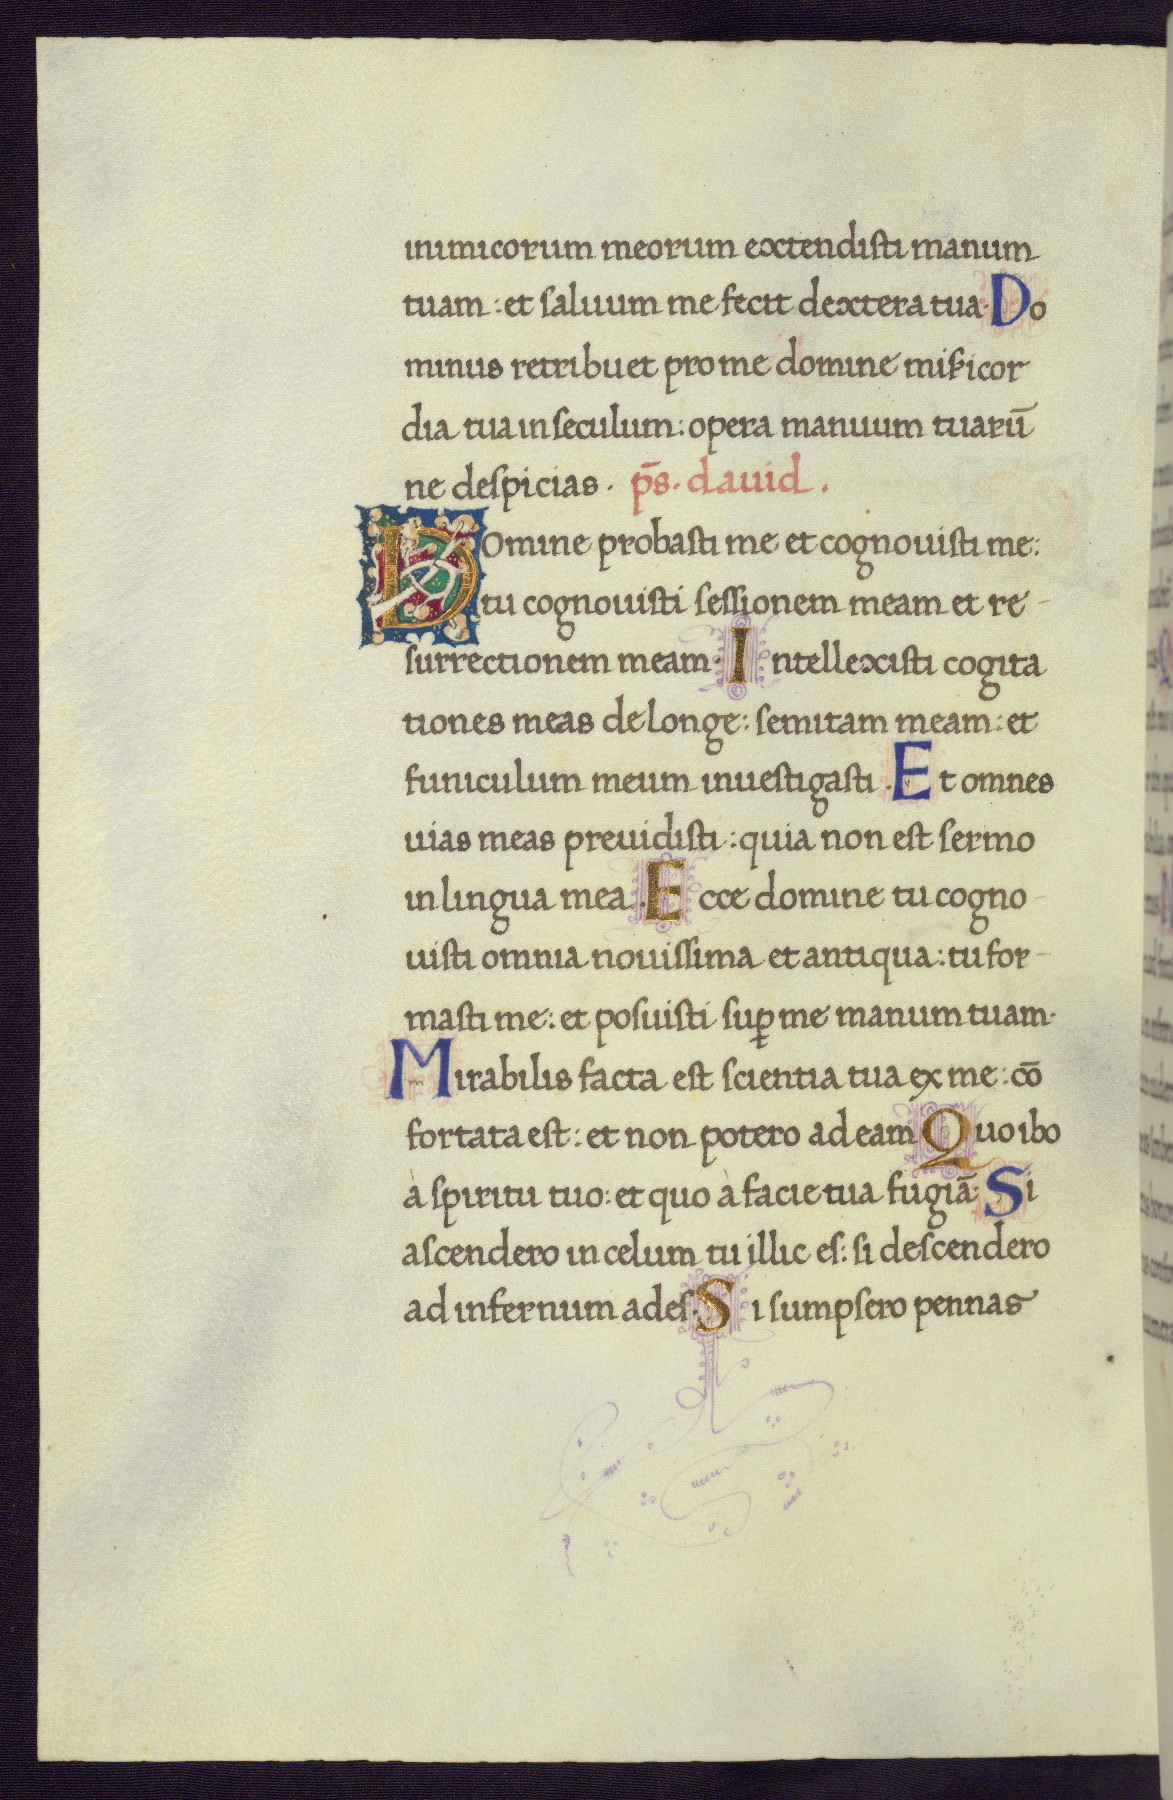 inimicorum meorum extendisti manum
tuam : et saluum me fecit dextera tua. Do
minus retribuet pro me domine misꝛicor
dia tua in seculum : opera manuum tuarū
ne despicias . p̄s. dauid .
Domine probasti me et cognouisti me :
tu cognouisti sessionem meam et re-
surrectionem meam . Intellexisti cogita
tiones meas de longe : semitam meam : et
funiculum meum inuestigasti . Et omnes
uias meas preuidisti : quia non est sermo
in lingua mea . Ecce domine tu cogno-
uisti omnia nouissima et antiqua : tu for-
masti me : et posuisti suꝑ me manum tuam.
Mirabilis facta est scientia tua ex me : cō
fortata est : et non potero ad eam Quo ibo
à spiritu tuo : et quo à facie tua fugiā : Si
ascendero in celum tu illic es : si descendero
ad infernum ades . Si sumpsero pennas